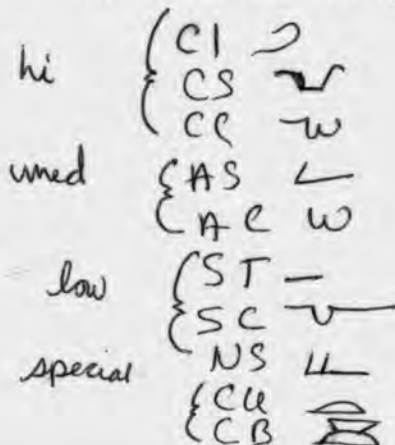 CI
hi CS
CC
med AS
AC
low ST
SC
special NS
CU
CB